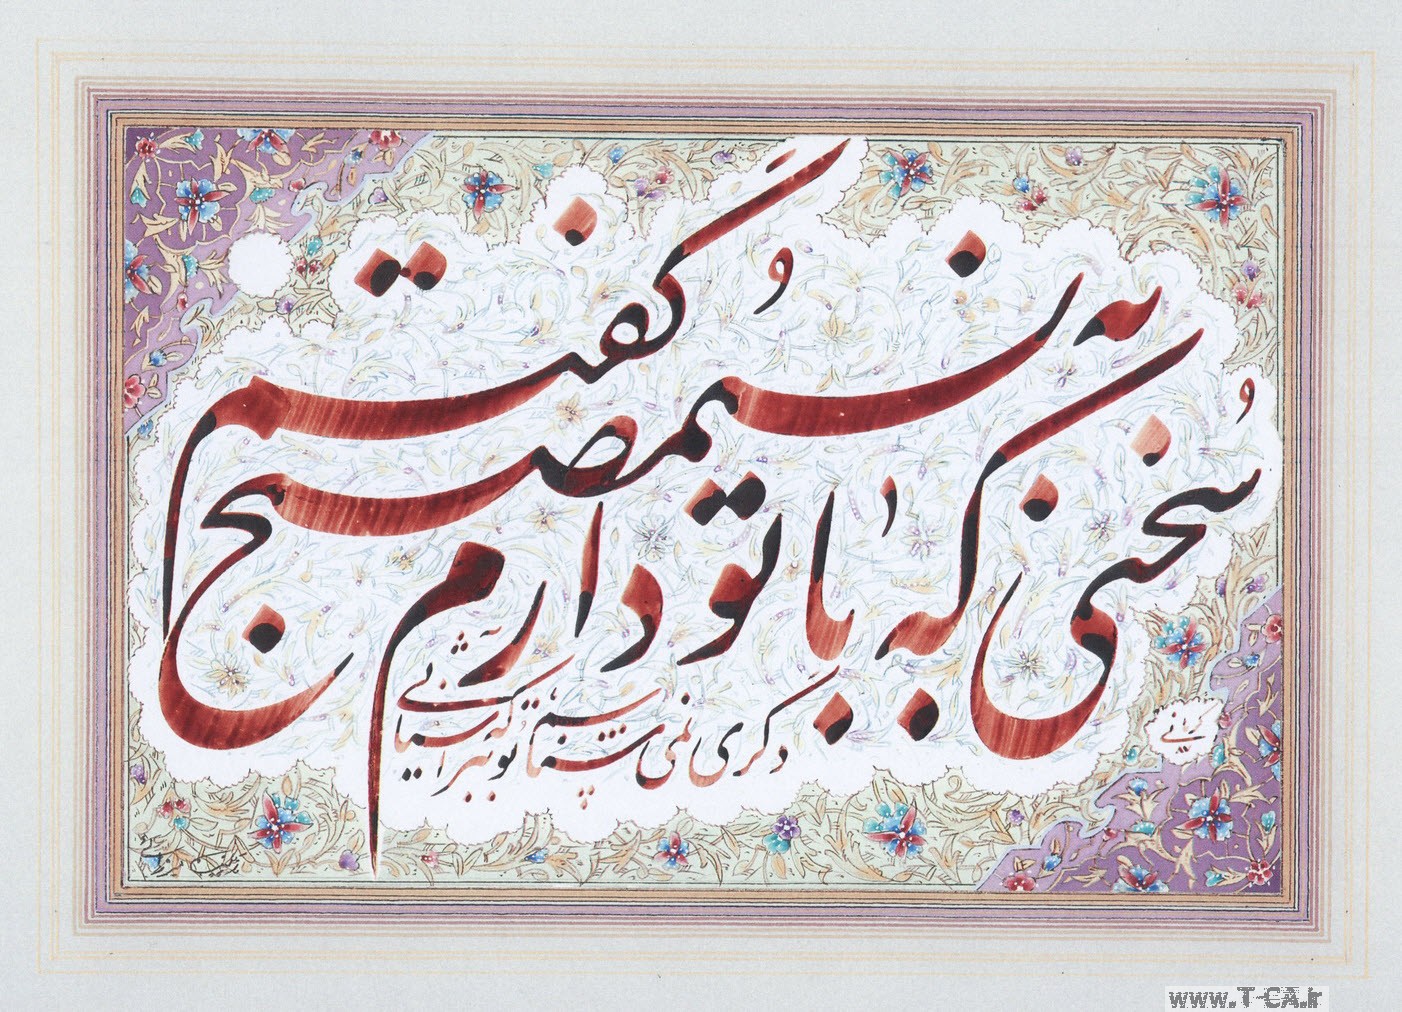 سُخنی که با تو دارم به نسیم صبح گفتم
دگری نمی شناسم تو ببر که آشنایی
www.T-CA.ir